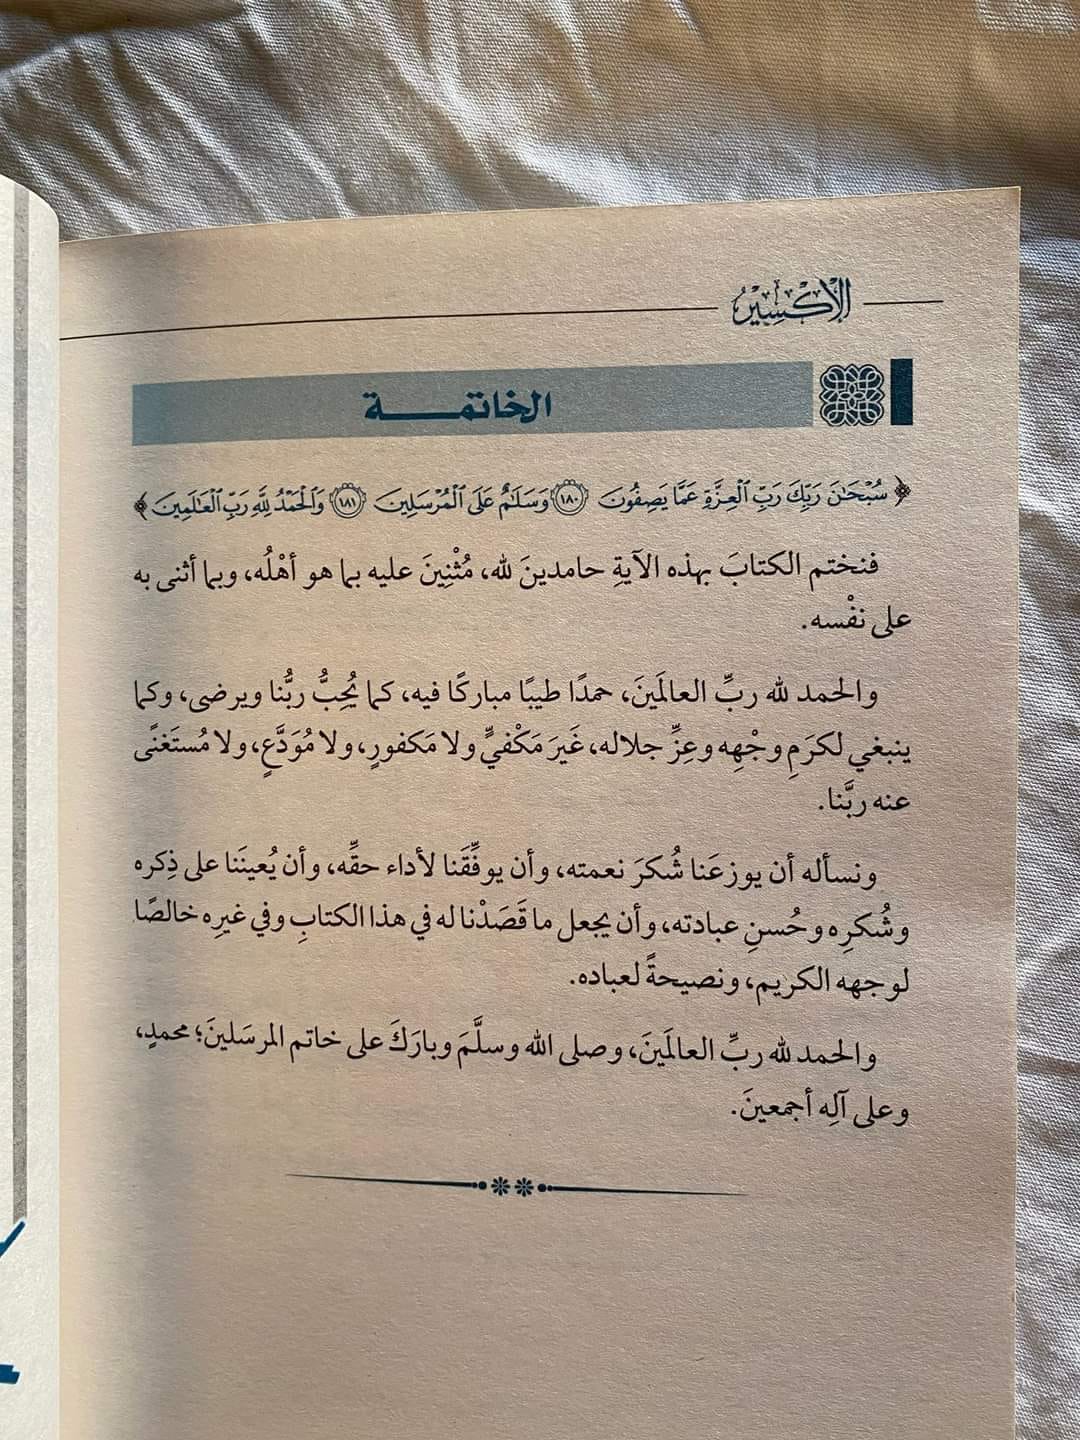 الإكسير
الخاتمـــــة
﴿سُبْحَٰنَ رَبِّكَ رَبِّ ٱلْعِزَّةِ عَمَّا يَصِفُونَ ١٨٠ وَسَلَٰمٌ عَلَى ٱلْمُرْسَلِينَ ١٨١ وَٱلْحَمْدُ لِلَّهِ رَبِّ ٱلْعَٰلَمِينَ﴾
فنختم الكتابَ بهذه الآيةِ حامدينَ لله، مُثْنِينَ عليه بما هو أهْلُه، وبما أثنى به
على نفْسه.
والحمد لله ربِّ العالَمينَ، حمدًا طيبًا مباركًا فيه، كما يُحِبُّ ربُّنا ويرضى، وكما
ينبغي لكرَمِ وجْهِه وعِزِّ جلاله، غَيرَ مَكْفيٍّ ولا مَكفورٍ، ولا مُوَدَّعٍ، ولا مُستَغنًى
عنه ربَّنا.
ونسأله أن يوزعَنا شُكرَ نعمته، وأن يوفِّقَنا لأداء حقِّه، وأن يُعينَنا على ذِكره
وشُكرِه وحُسنِ عبادته، وأن يجعل ما قَصَدْنا له في هذا الكتابِ وفي غيرِه خالصًا
لوجهه الكريم، ونصيحةً لعباده.
والحمد لله ربِّ العالَمينَ، وصلى الله وسلَّمَ وبارَكَ على خاتم المرسَلينَ؛ محمدٍ،
وعلى آلِه أجمعينَ.